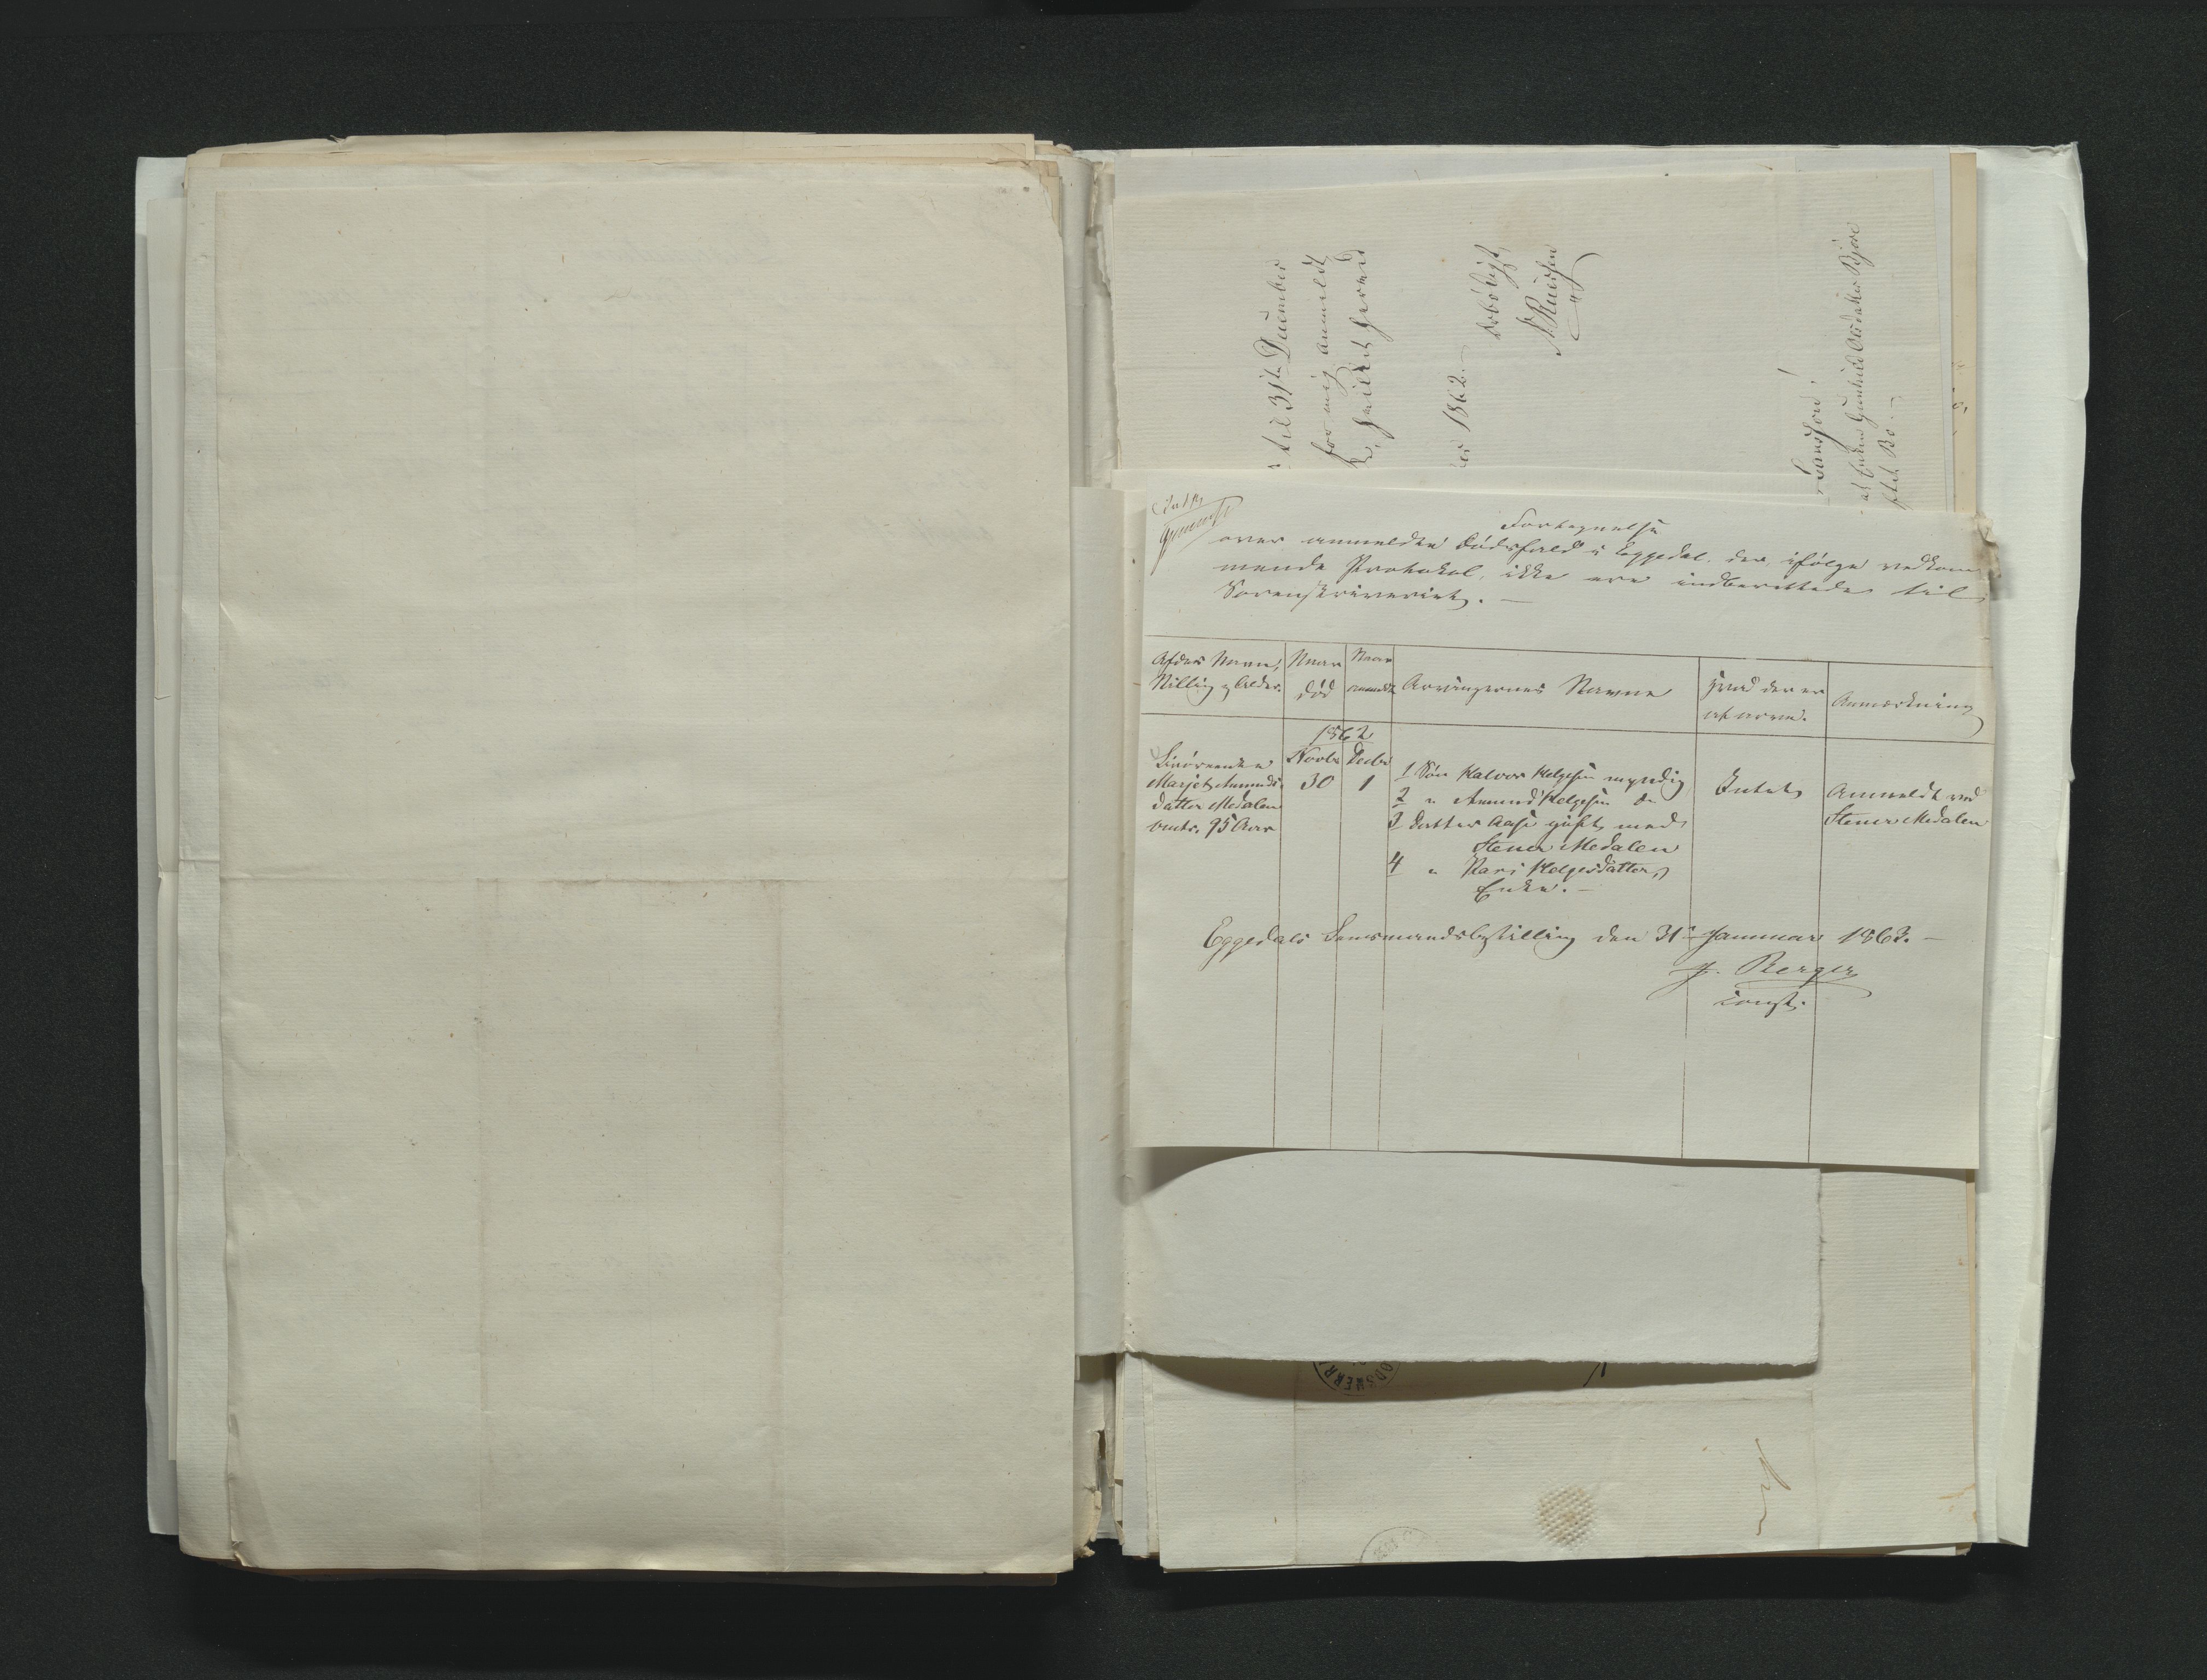 til 31te December
for mig anmeldt
1862.
Ærbødigst
Gunhild Olsdatter Bjøre
Bo.
Fortegnelse
over anmeldte Dødsfald i Eggedal, der, ifølge vedkom-
mende Protokol, ikke ere indberettede til
Sorenskriveriet. —
Afdøs Navn, Stilling og Alder.
Naar død
Naar anmeldt
Arvingernes Navne
Hvad der er at arve.
Anmærkning
1862
Novbr 30
Decbr 1
Marjet Amunds-
datter Medalen
95 Aar
1 Søn Halvor Helgesen myndig
2 " Amund Helgesen do
3 Datter Aase gift med
Stener Medalen
4 " Kari Helgesdatter,
Enke. —
Intet
Anmeldt ved
Stener Medalen
Eggedals Lensmandsbestilling den 31te Januar 1863. —
J. Berger
const.